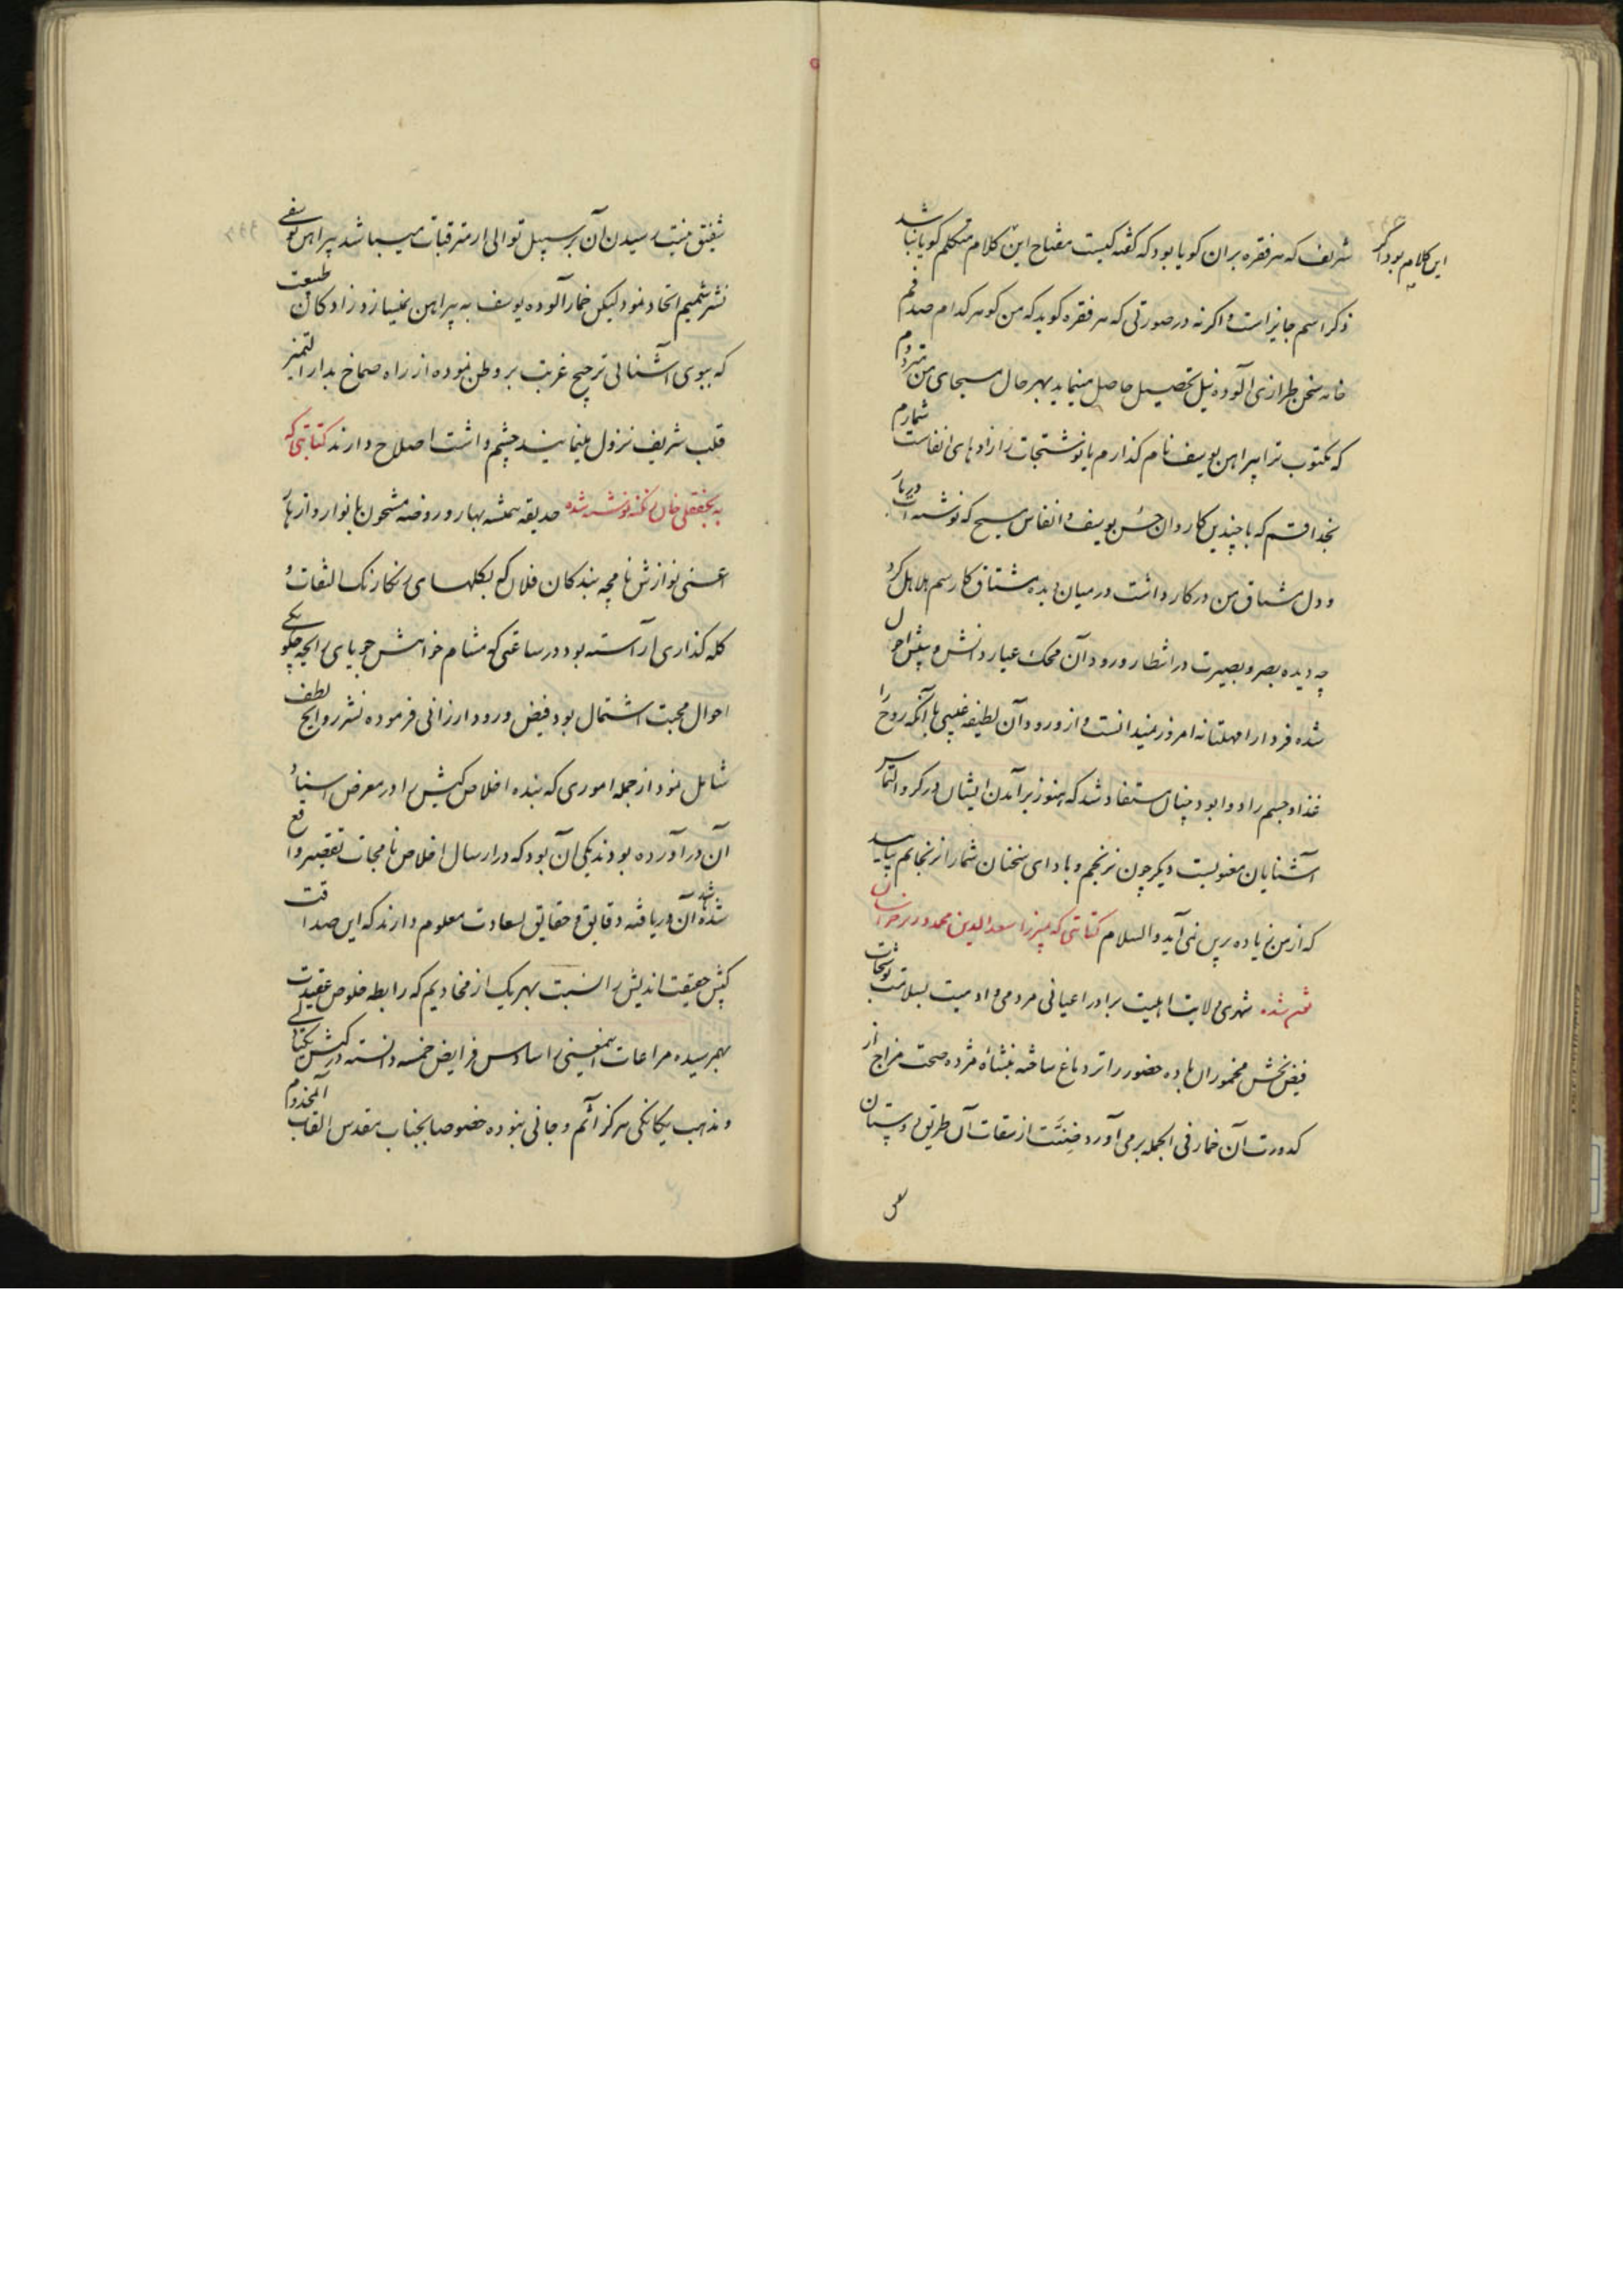 شریف که هر فقره بران کویا بود که گفته کیست مفتاح این کلام متکلم کویا نباشد
این کلام بود اگر
ذکر اسم جایز است و اکر نه در صورتی که هر فقره کوید که من کوهر کدام صدفم
خانه سخن طرازی آلوده نیل تحصیل حاصل مینماید بهر حال مسیحای من
که مکتوب ترا پیراهن یوسف نام کذارم یا نوشتجات را زادهای انفاست شمارم
بخدا قسم که با چندین کاروان حسن یوسف و انفاس مسیح که نوشته ات دربار
و دل مشتاق من در کار داشت در میان دیده مشتاق کار رسم هلاهل کرد
چه دیده بصر و بصیرت در انتظار ورود آن محک عیار دانش و بینش احول
شده فردا را مهلتانه امروز میدانست و از ورود آن لطیفه غیبی با آنکه روح را
غذا و جسم را دوا بود چنان مستفاد شد که هنوز برآمدن ایشان در کرو التماس
آشنایان مغولیست دیگر چون نرنجم و با دای سخنان شما را نرنجانم بیایید
که از من زیاده برین نمی آید والسلام کتابتی که میرزا سعدالدین محمد وزیر خراسان
قلمی شده شهری ولایت اهلیت برادر اعیانی مردمی و ادمیت بسلامت نوشتجات
فیض بخش مخموران باده حضور را تر دماغ ساخته بنشاه مژده صحت مزاج از
کدورت آن خمار فی الجمله برمی آورد ضنت از ثقات آن طریق دوستان
شفیق نیست رسیدن آن بر سبیل توالی از مترقبات میباشد پیراهن یوسفی
نشر شمیم اتحاد نمود لیکن خمار آلوده یوسف به پیراهن نمیسازد زادکان طبیعت
که ببوی آشنائی ترجیح غربت بر وطن نموده از راه صماخ بدار التمیز
قلب شریف نزول مینمایند چشم داشت اصلاح دارند کتابتی که
به نجفقلی خان نوشته شده حدیقه همیشه بهار و روضه مشحون بانوار و ازهار
اعنی نوازش نامچه بندکان فلان که بکلهای رنکارنک التفات و
کله کذاری آراسته بود در ساعتی که مشام خواهش جویای رایحه چکونکی
احوال محبت اشتمال بود فیض ورود ارزانی فرموده نشر روایح لطف
شامل نمود از جمله اموری که بنده اخلاص کیش را در معرض
آن در آورده بودند یکی آن بود که در ارسال اخلاص نامجات تقصیر واقع
شده باشد آن دریافته دقایق و حقایق بسعادت معلوم دارند که این صداقت
کیش حقیقت اندیش را نسبت بهر یک از مخادیم که رابطه خلوص عقیدت
بهمرسیده مراعات اینمعنی را سادس فرایض خمسه دانسته در کیش یکتائی
و مذهب یکانکی هرکز آثم و جانی نبوده خصوصا بجناب مقدس القاب المخدوم